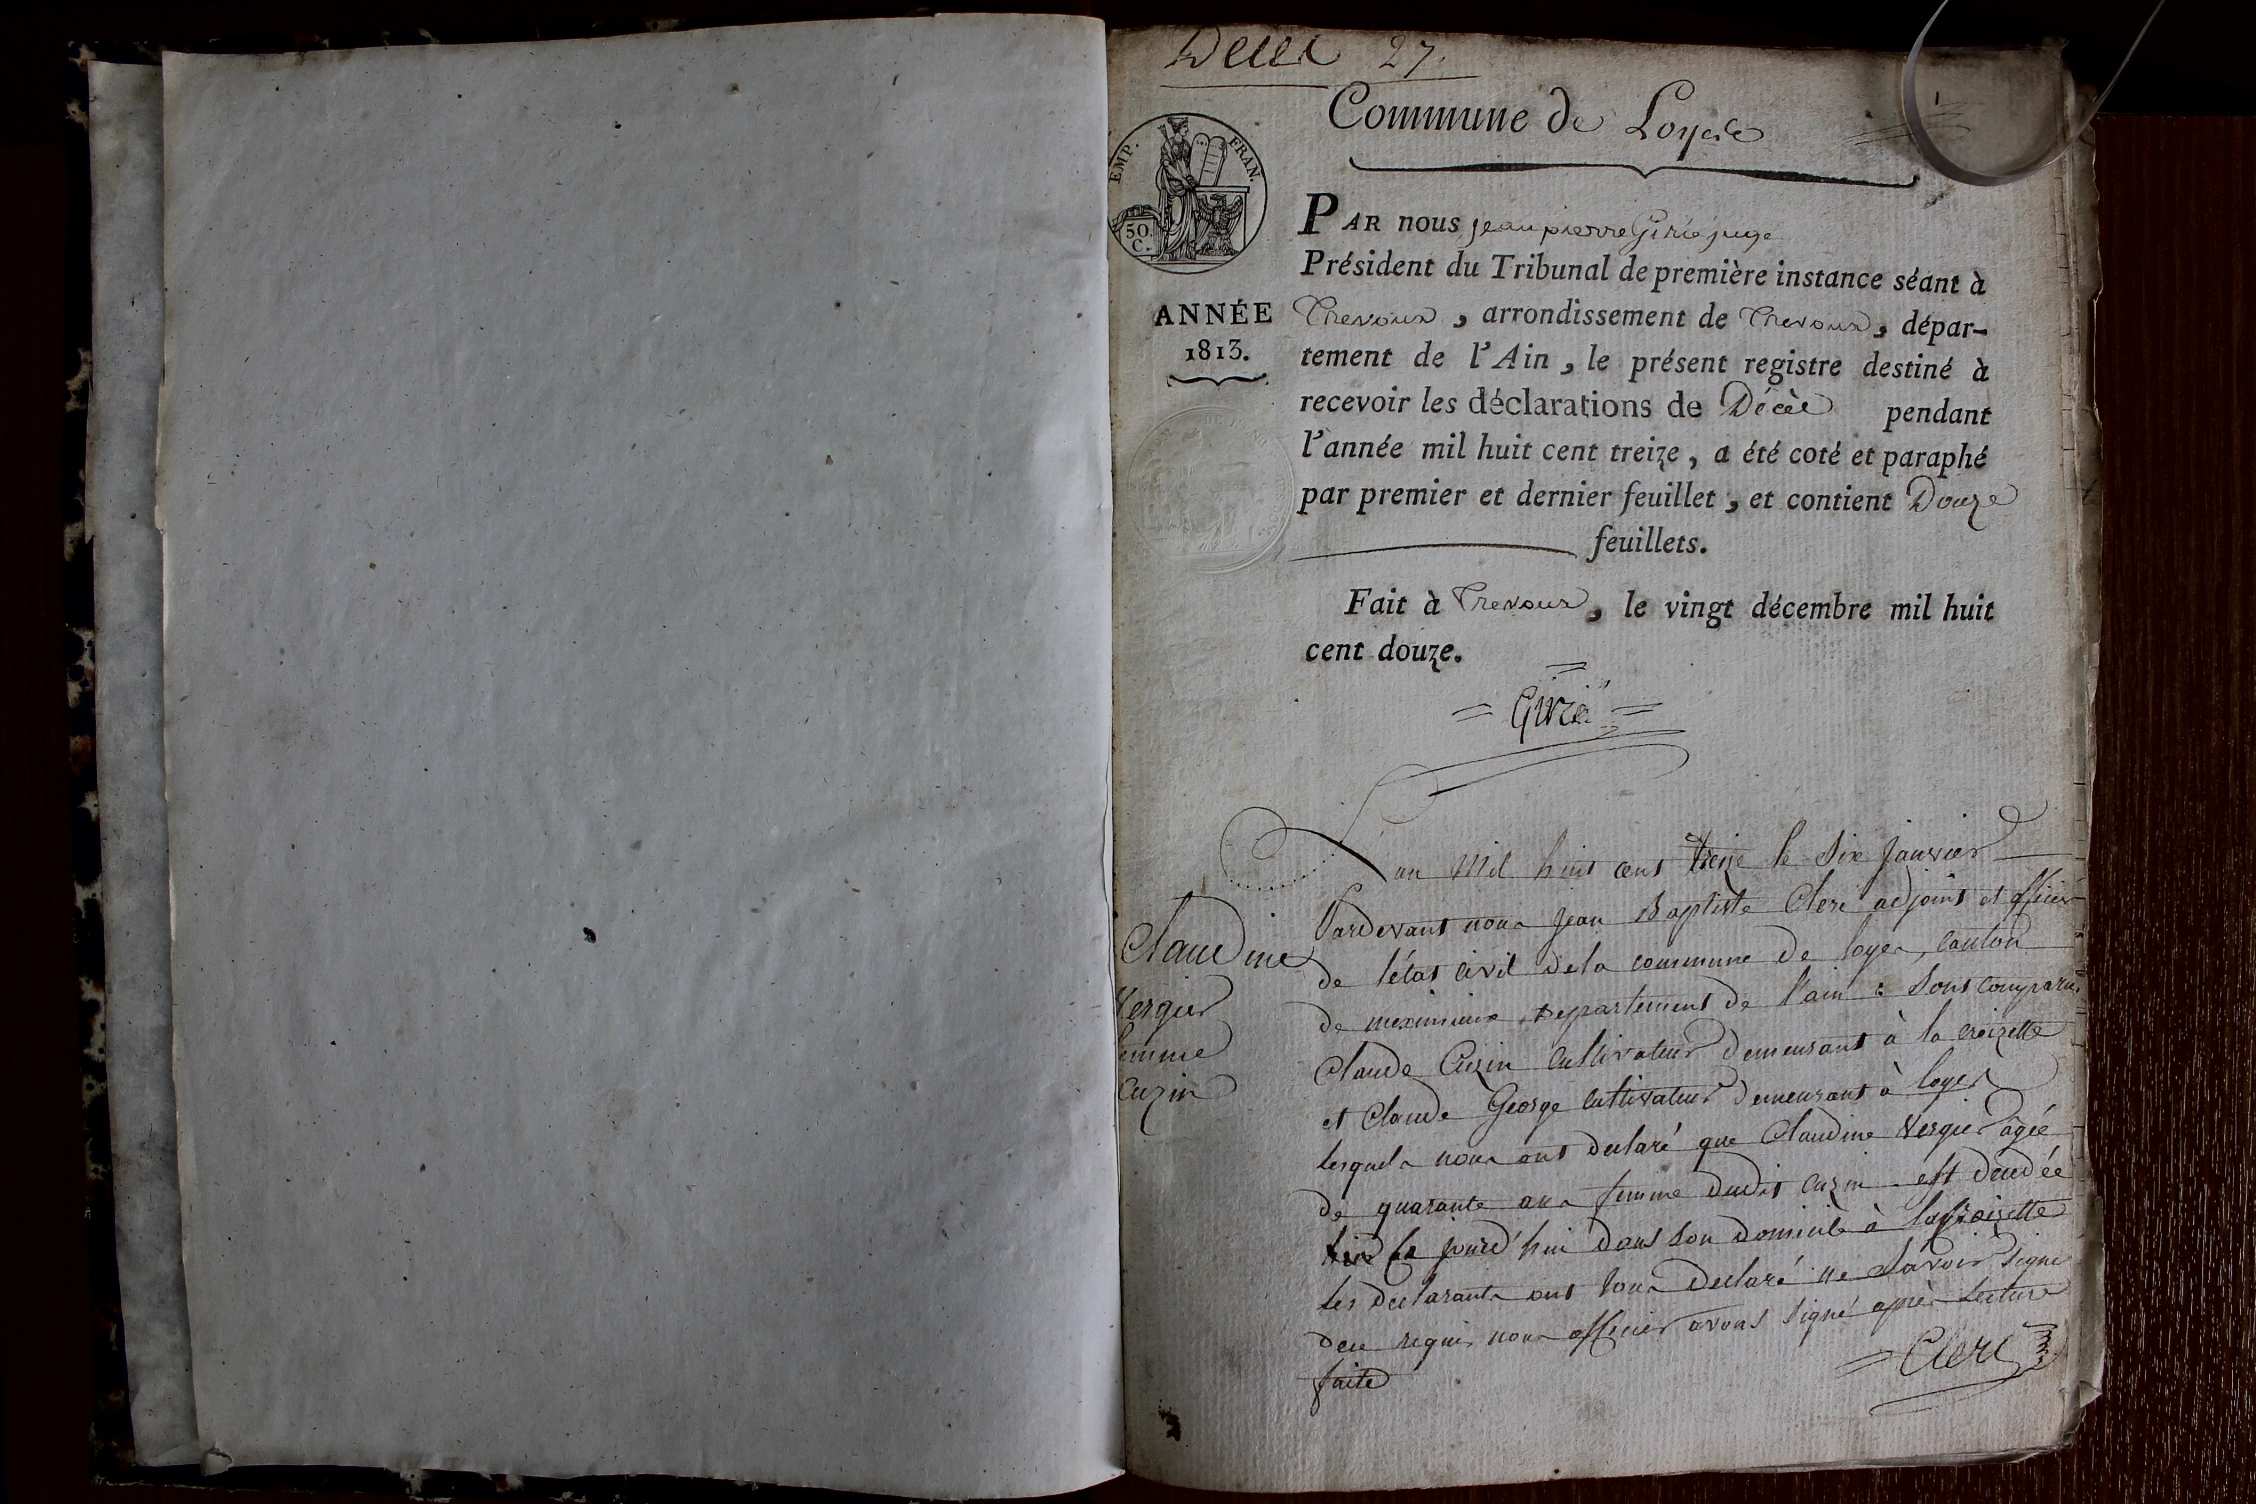 Décès 27.
Commune de Loyes
1
EMP. FRAN.
50.
C.
ANNÉE
1813.
PAR nous jean pierre Girié juge
Président du Tribunal de première instance séant à
Trevoux, arrondissement de Trevoux, dépar-
tement de l'Ain, le présent registre destiné à
recevoir les déclarations de Décès pendant
l'année mil huit cent treize, a été coté et paraphé
par premier et dernier feuillet, et contient Douze
feuillets.
Fait à Trevoux, le vingt décembre mil huit
cent douze.
Girié
Claudine
Vergier
femme
Cuzin
L'an mil huit cent treize le Six janvier
Pardevant nous jean Baptiste Clerc adjoint et officier
de l'état civil dela commune de loyes, canton
de meximieux, departement de l'ain : sont comparus
Claude Cuzin cultivateur demeurant à la croizette
et Claude George cultivateur demeurant à loyes
lesquels nous ont declaré que Claudine Vergier agée
de quarante ans femme dudit cuzin est decedée
ce jourd'hui dans son domicile à la croizette
les declarants ont tous declaré ne Savoir signer
de ce requis nous officier avons signé après lecture
faite
Clerc